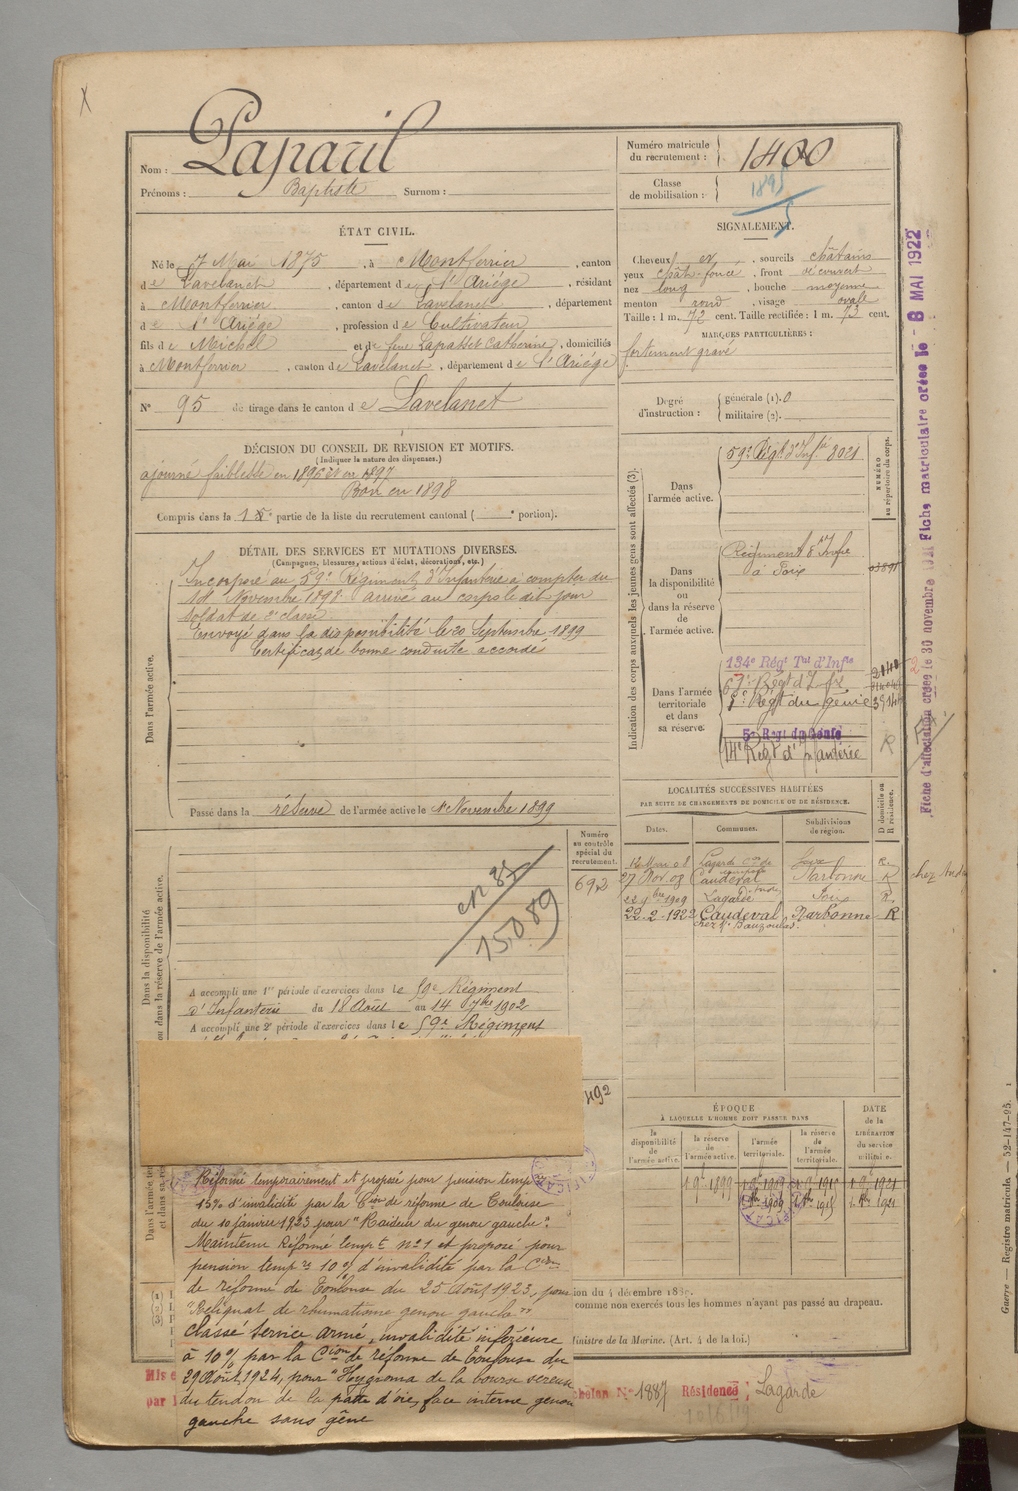 X
Nom : Paparil
Prénoms : Baptiste Surnom :
Numéro matricule du recrutement : 1400
Classe de mobilisation : 1895
ÉTAT CIVIL.
Né le 7 Mai 1875, à Montferrier, canton
de Lavelanet, département de l'Ariège, résidant
à Montferrier, canton de Lavelanet, département
de l'Ariège, profession de Cultivateur
fils de Michel et de feue Lapasset Catherine, domiciliés
à Montferrier, canton de Lavelanet, département de l'Ariège
N° 95 de tirage dans le canton de Lavelanet
SIGNALEMENT.
Cheveux et, sourcils châtains
yeux chât-foncé, front découvert
nez long, bouche moyenne
menton rond, visage ovale
Taille : 1 m. 72 cent. Taille rectifiée : 1 m. 73 cent.
MARQUES PARTICULIÈRES :
fortement gravé
Degré d'instruction : générale (1). 0
militaire (2).
DÉCISION DU CONSEIL DE RÉVISION ET MOTIFS.
(Indiquer la nature des dispenses.)
ajourné faiblesse en 1896 et en 1897
Bon en 1898
Compris dans la 1e partie de la liste du recrutement cantonal ( portion).
DÉTAIL DES SERVICES ET MUTATIONS DIVERSES.
(Campagnes, blessures, actions d'éclat, décorations, etc.)
Dans l'armée active.
Incorporé au 59e Régiment d'Infanterie à compter du
Novembre 1898. arrivé au corps le dit jour
soldat de 2e classe.
Envoyé dans la disponibilité le 20 Septembre 1899
Certificat de bonne conduite accordé
Passé dans la réserve de l'armée active le 1er Novembre 1899
Indication des corps auxquels les jeunes gens sont affectés (3).
NUMÉRO au répertoire du corps.
Dans l'armée active.
59e Régt d'Infie 3021
Dans la disponibilité ou dans la réserve de l'armée active.
Régiment d'Infie
à Foix
Dans l'armée territoriale et dans sa réserve.
134e Régt Tal d'Infie
67e Régt d'Inf
Régt du génie
5e Régt du Génie
14e Régt d'Infanterie R
LOCALITÉS SUCCESSIVES HABITÉES
PAR SUITE DE CHANGEMENTS DE DOMICILE OU DE RÉSIDENCE.
Dates. Communes. Subdivisions de région. D domicile ou R résidence.
12 Mai 08 Lagarde Foix R.
27 Nov. 08 Caudeval Narbonne R
1909 Lagarde Foix R.
22-2-1922 Caudeval Narbonne R
chez Mr
Numéro au contrôle spécial du recrutement.
692
Dans la disponibilité ou dans la réserve de l'armée active.
15089
A accompli une 1re période d'exercices dans le 59e Régiment
d'Infanterie du 18 Août au 14 7bre 1902
A accompli une 2e période d'exercices dans le 59e Régiment
492
ÉPOQUE
À LAQUELLE L'HOMME DOIT PASSER DANS
la disponibilité de l'armée active. la réserve de l'armée active. l'armée territoriale. la réserve de l'armée territoriale. DATE de la LIBÉRATION du service militaire.
Réformé temporairement et proposé pour pension temp
15% d'invalidité par la Cion de réforme de Toulouse
du 10 janvier 1923 pour "Raideur du genou gauche".
Maintenu Réformé tempt n°1 et proposé pour
pension tempre 10% d'invalidité par la Cion
de réforme de Toulouse du 25 Août 1923, pour
"Reliquat de rhumatisme genou gauche"
Classé service armé, invalidité inférieure
à 10% par la Cion de réforme de Toulouse du
29 Août 1924, pour "Hygroma de la bourse séreuse
du tendon de la patte d'oie, face interne genou
gauche sans gêne
comme non exercés tous les hommes n'ayant pas passé au drapeau.
Ministre de la Marine. (Art. 4 de la loi.)
N° 1887 Résidence : Lagarde
Fiche d'affectation créée le 30 novembre 1921 Fiche matriculaire créée le - 8 MAI 1922
Guerre — Registre matricule. — 52-147-95.